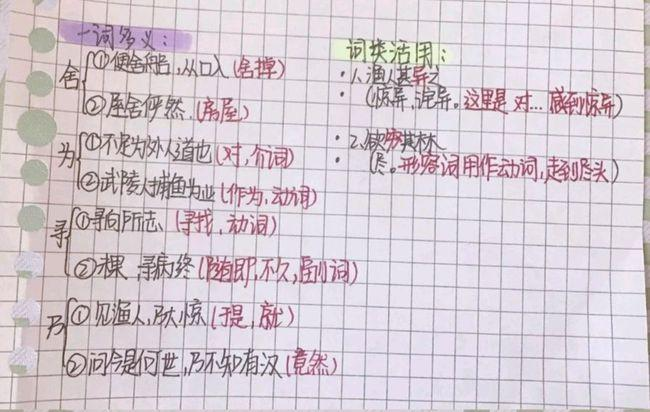 一词多义：
舍
①便舍船，从口入(舍掉)
②屋舍俨然.(房屋)
为
①不足为外人道也(对，介词)
②武陵人捕鱼为业(作为，动词)
寻
①寻向所志(寻找，动词)
②未果，寻病终(随即，不久，副词)
乃
①见渔人，乃大惊(于是，就)
②问今是何世，乃不知有汉(竟然)
词类活用：
·1、渔人甚异之
·(惊异，诧异。这里是对…感到惊异)
·2、欲穷其林
·(尽。形容词用作动词，走到尽头)